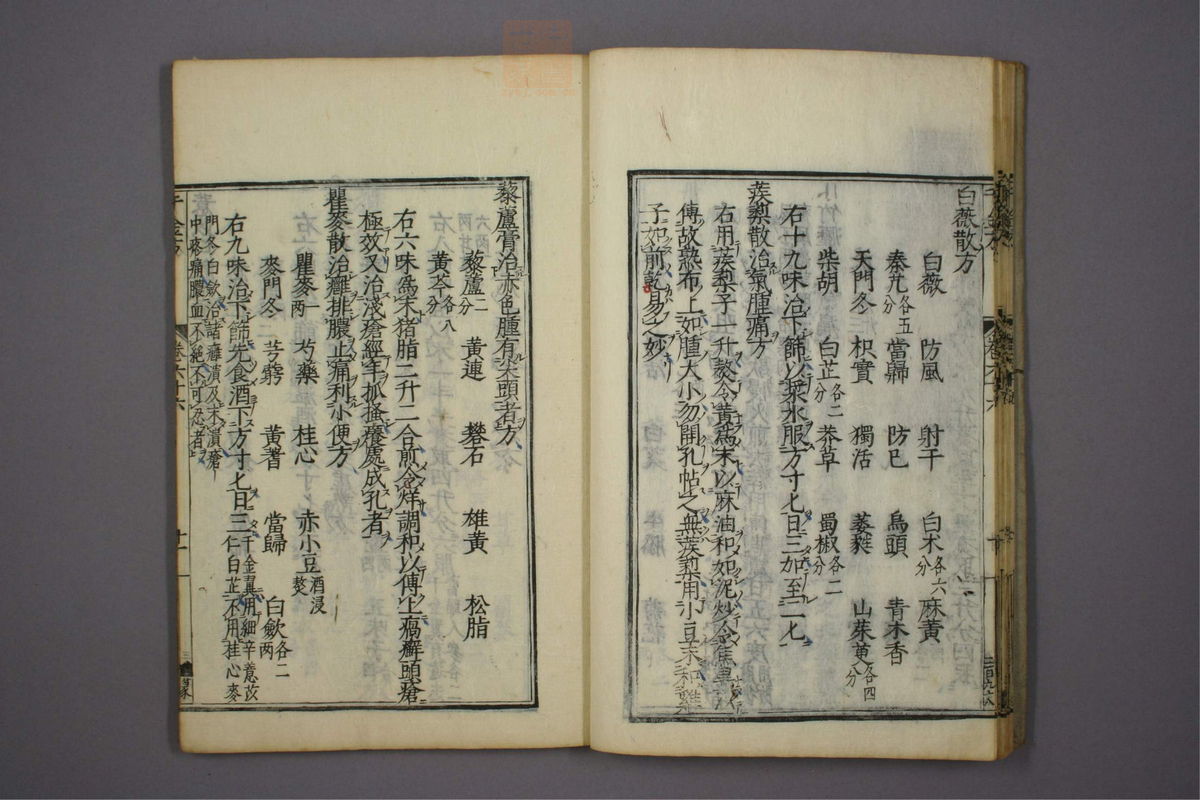 白薇散方
白薇　防風　射干　白朮各六分　麻黃
秦艽各五分　當歸　防已　烏頭　青木香
天門冬　枳實　獨活　萎蕤　山茱萸各四分
柴胡　白芷各二分　莽草　蜀椒各二分
右十九味治下篩以漿水服方寸匕日三加至二匕
蒺蔾散治氣腫痛方
右用蒺蔾子一升熬令黃爲末以麻油和如泥炒令焦黑
傅故熟布上如腫大小勿開孔帖之無蒺蔾用小豆末和雞
子如前乾易之妙
藜蘆膏治赤色腫有尖頭者方
藜蘆二分　黃連　礬石　雄黃　松脂
黃芩各八分
右六味爲末猪脂二升二合煎令烊調和以傅上癬頭瘡
極效又治淺瘡經年抓搔癢處成孔者
瞿麥散治癰排膿止痛利小便方
瞿麥一兩　芍藥　桂心　赤小豆酒浸熬
麥門冬二　芎藭　黃耆　當歸　白斂各二兩
右九味治下篩先食酒下方寸匕日三千金翼用細辛薏苡
仁白芷不用桂心麥
門冬白斂治諸癰潰及未潰瘡
中疼痛膿血不絕不可忍者
千金方　卷六十六　廿一